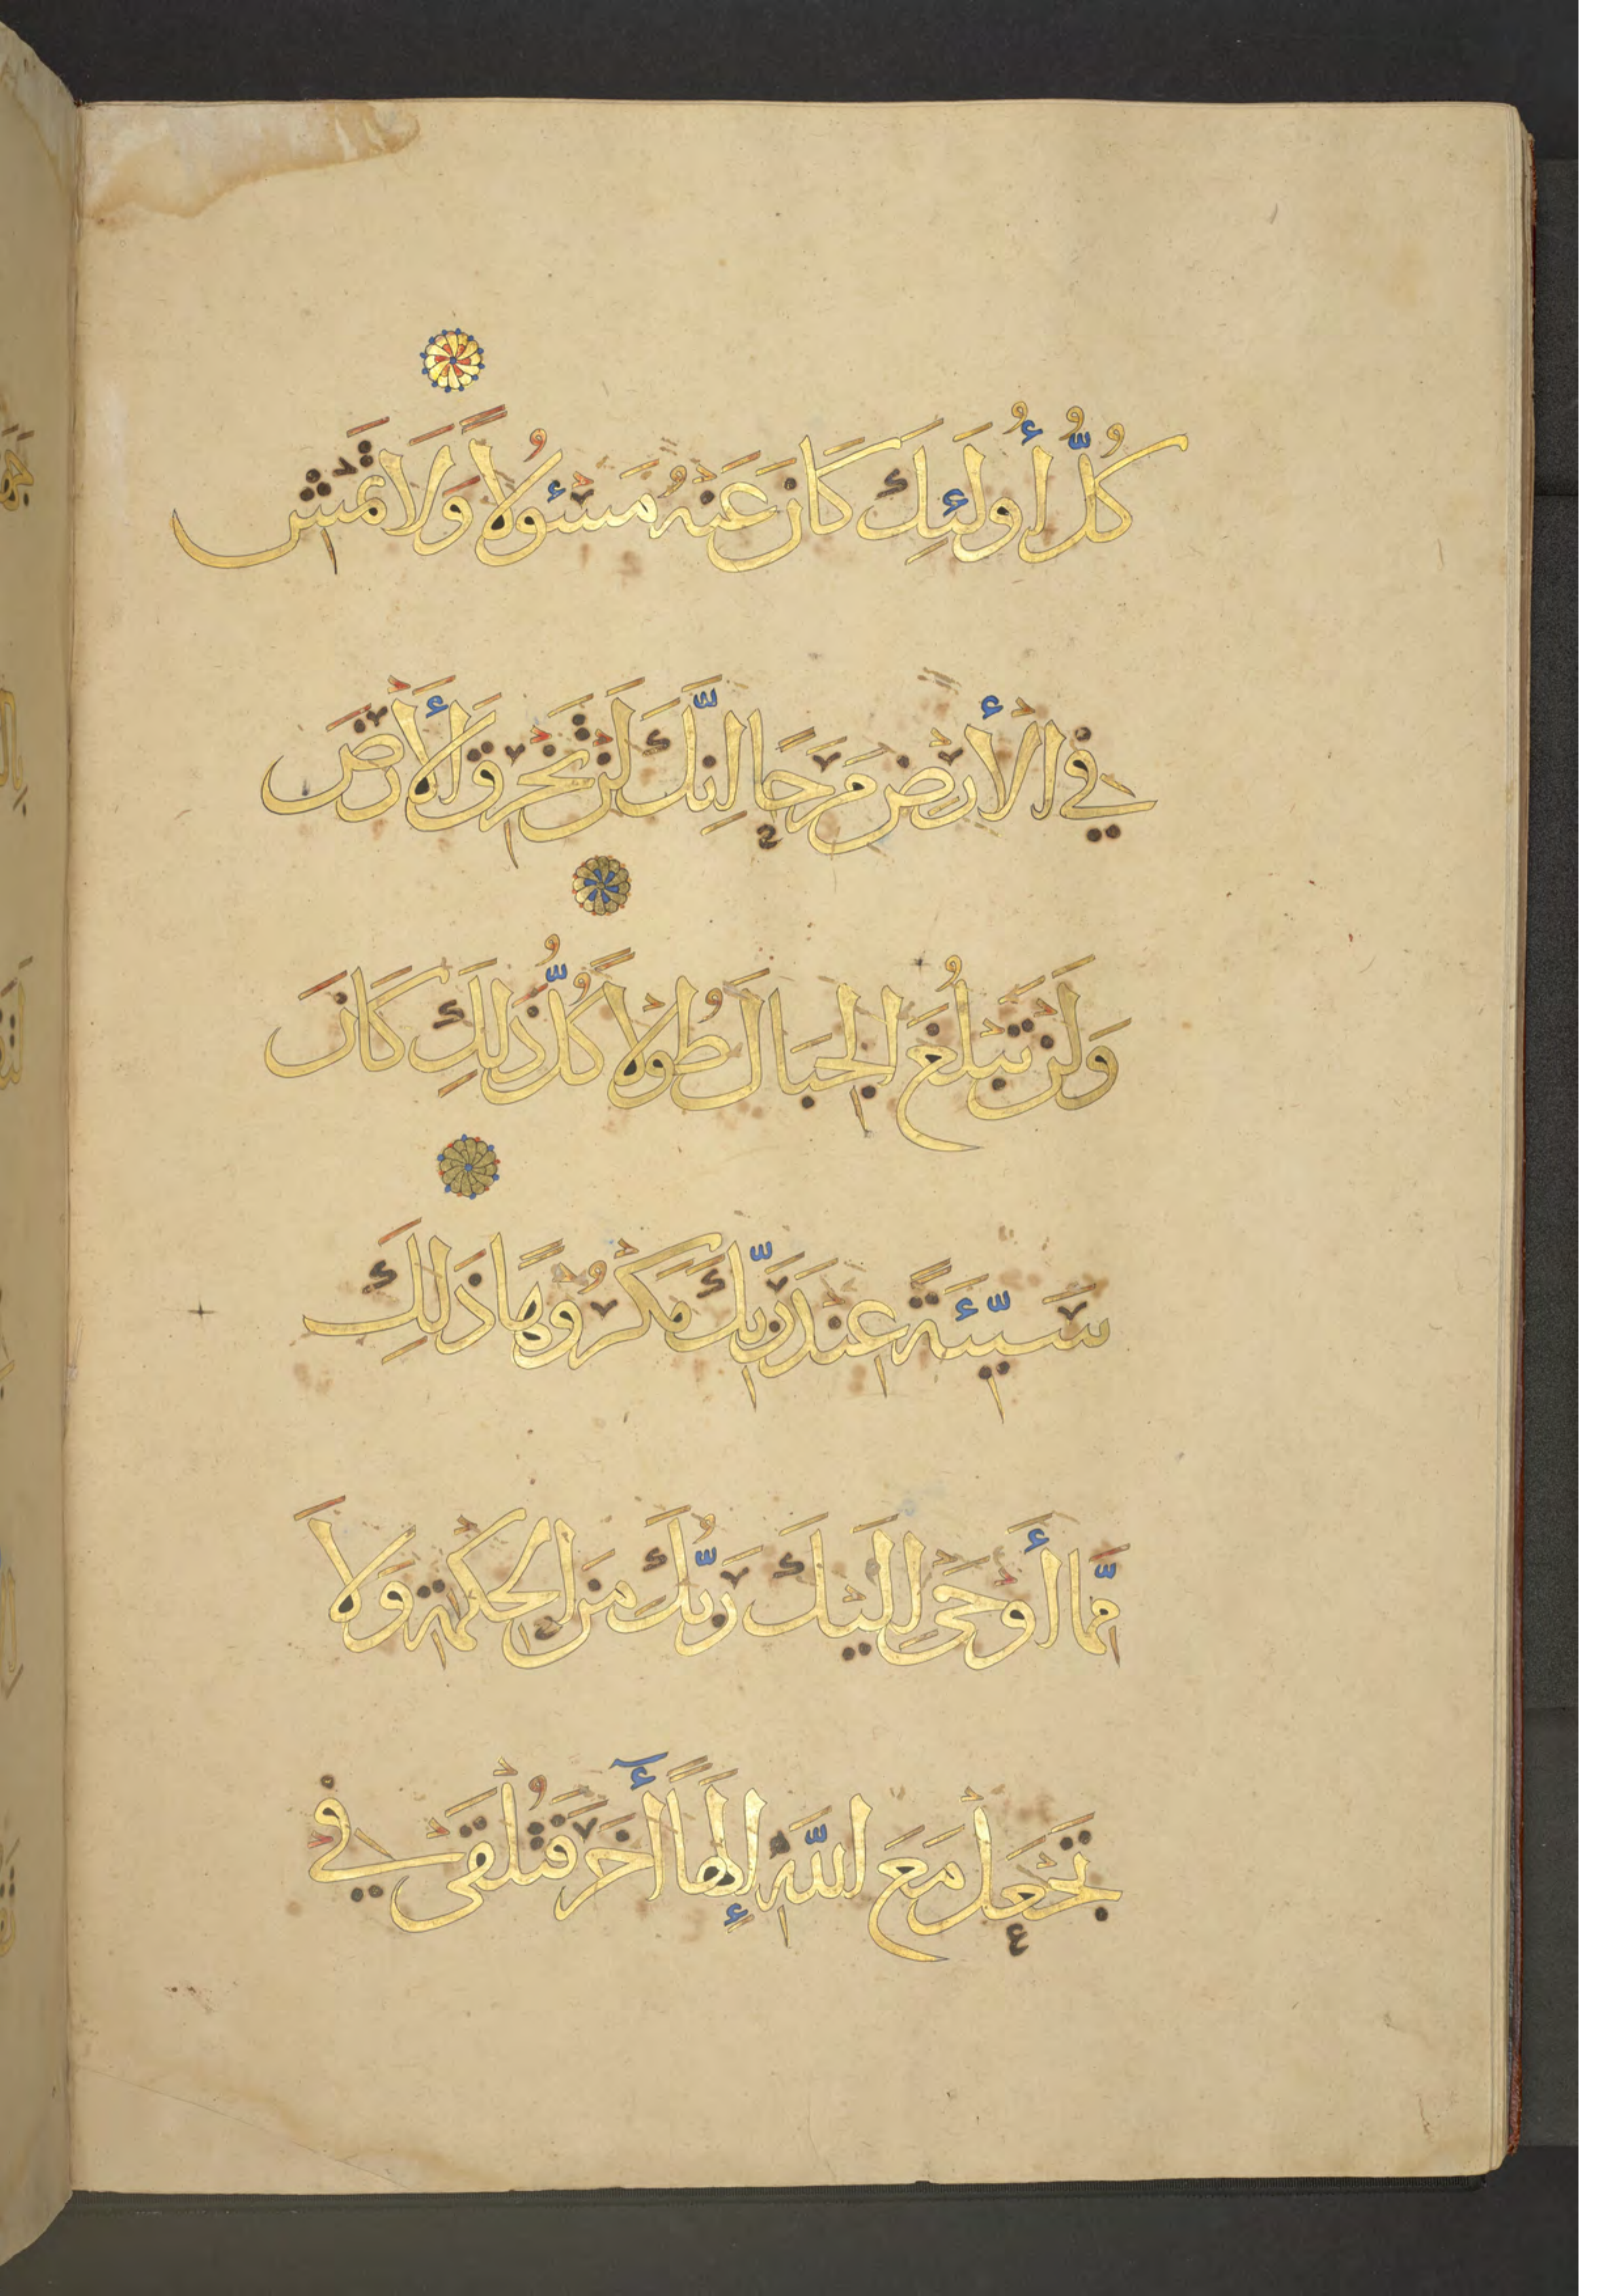 كُلُّ أُولَئِكَ كَانَ عَنْهُ مَسْئُولاً وَلَا تَمْشِ
فِي الْأَرْضِ مَرَحًا إِنَّكَ لَنْ تَخْرِقَ الْأَرْضَ
وَلَنْ تَبْلُغَ الْجِبَالَ طُولاً كُلُّ ذَلِكَ كَانَ
سَيِّئَةً عِنْدَ رَبِّكَ مَكْرُوهًا ذَلِكَ
مِمَّا أَوْحَى إِلَيْكَ رَبُّكَ مِنَ الْحِكْمَةِ وَلَا
تَجْعَلْ مَعَ اللَّهِ إِلَهًا آخَرَ فَتُلْقَى فِي